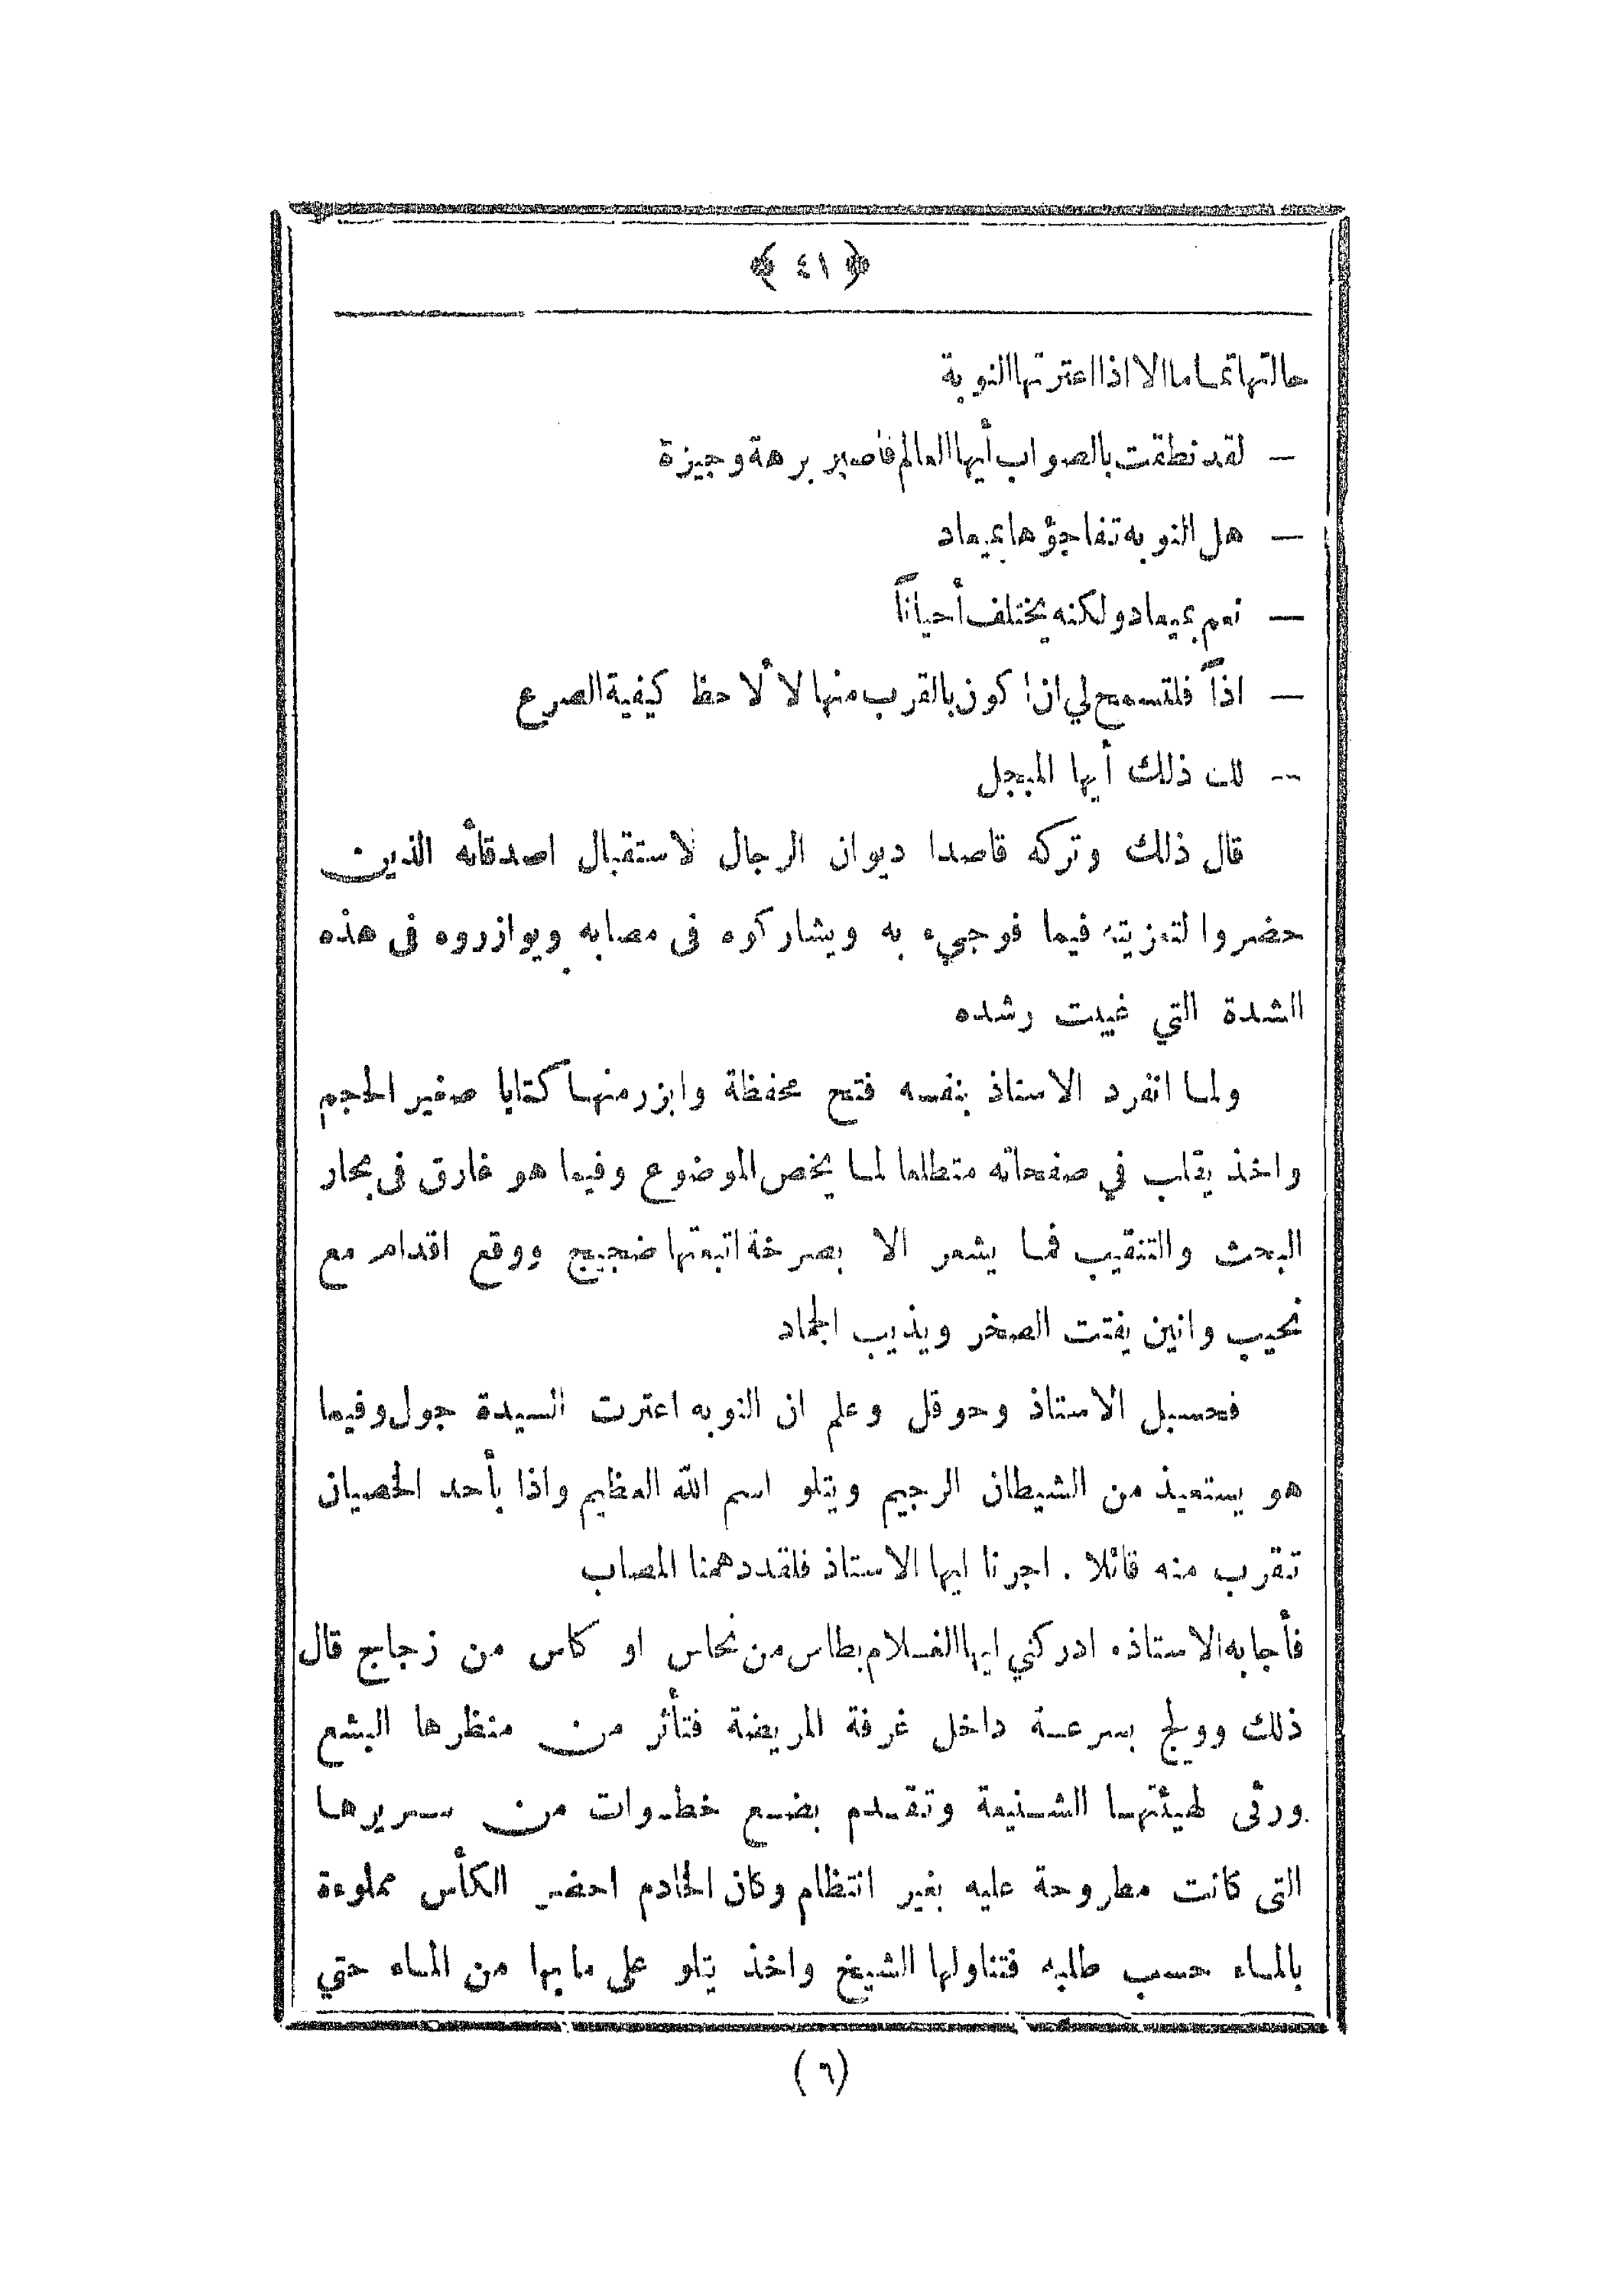 ﴿ ٤١ ﴾
حالتها تماما الا اذا اعترتها النوبة
— لقد نطقت بالصواب أيها العالم فأصبر برهة وجيزة
— هل النوبه تفاجؤها بميعاد
— نعم بميعاد ولكنه يختلف أحياناً
— اذاً فلتسمح لي ان اكون بالقرب منها لا لاحظ كيفية الصرع
— لك ذلك أيها المبجل
قال ذلك وتركه قاصدا ديوان الرجال لاستقبال اصدقائه الذين
حضروا لتعزيته فيما فوجيء به ويشاركوه فى مصابه ويوازروه فى هذه
الشدة التي غيبت رشده
ولما انفرد الاستاذ بنفسه فتح محفظة وابزر منها كتابا صغير الحجم
واخذ يقلب في صفحاته متطلعا لما يخص الموضوع وفيما هو غارق فى بحار
البحث والتنقيب فما يشعر الا بصرخة اتبعتها ضجيج ووقع اقدام مع
نحيب وانين يفتت الصخر ويذيب الجماد
فحسبل الاستاذ وحوقل وعلم ان النوبه اعترت السيدة جول وفيما
هو يستعيذ من الشيطان الرجيم ويتلو اسم الله العظيم واذا بأحد الخصيان
تقرب منه قائلا . اجرنا ايها الاستاذ فلقد دهمنا المصاب
فأجابه الاستاذه ادركني ايها الغلام بطاس من نحاس او كاس من زجاج قال
ذلك وولج بسرعة داخل غرفة المريضة فتأثر من منظرها البشع
ورثى لهيئتها الشنيعة وتقدم بضع خطوات من سريرها
التى كانت مطروحة عليه بغير انتظام وكان الخادم احضر الكأس مملوءة
بالماء حسب طلبه فتناولها الشيخ واخذ يتلو على ما بها من الماء حتي
(٦)